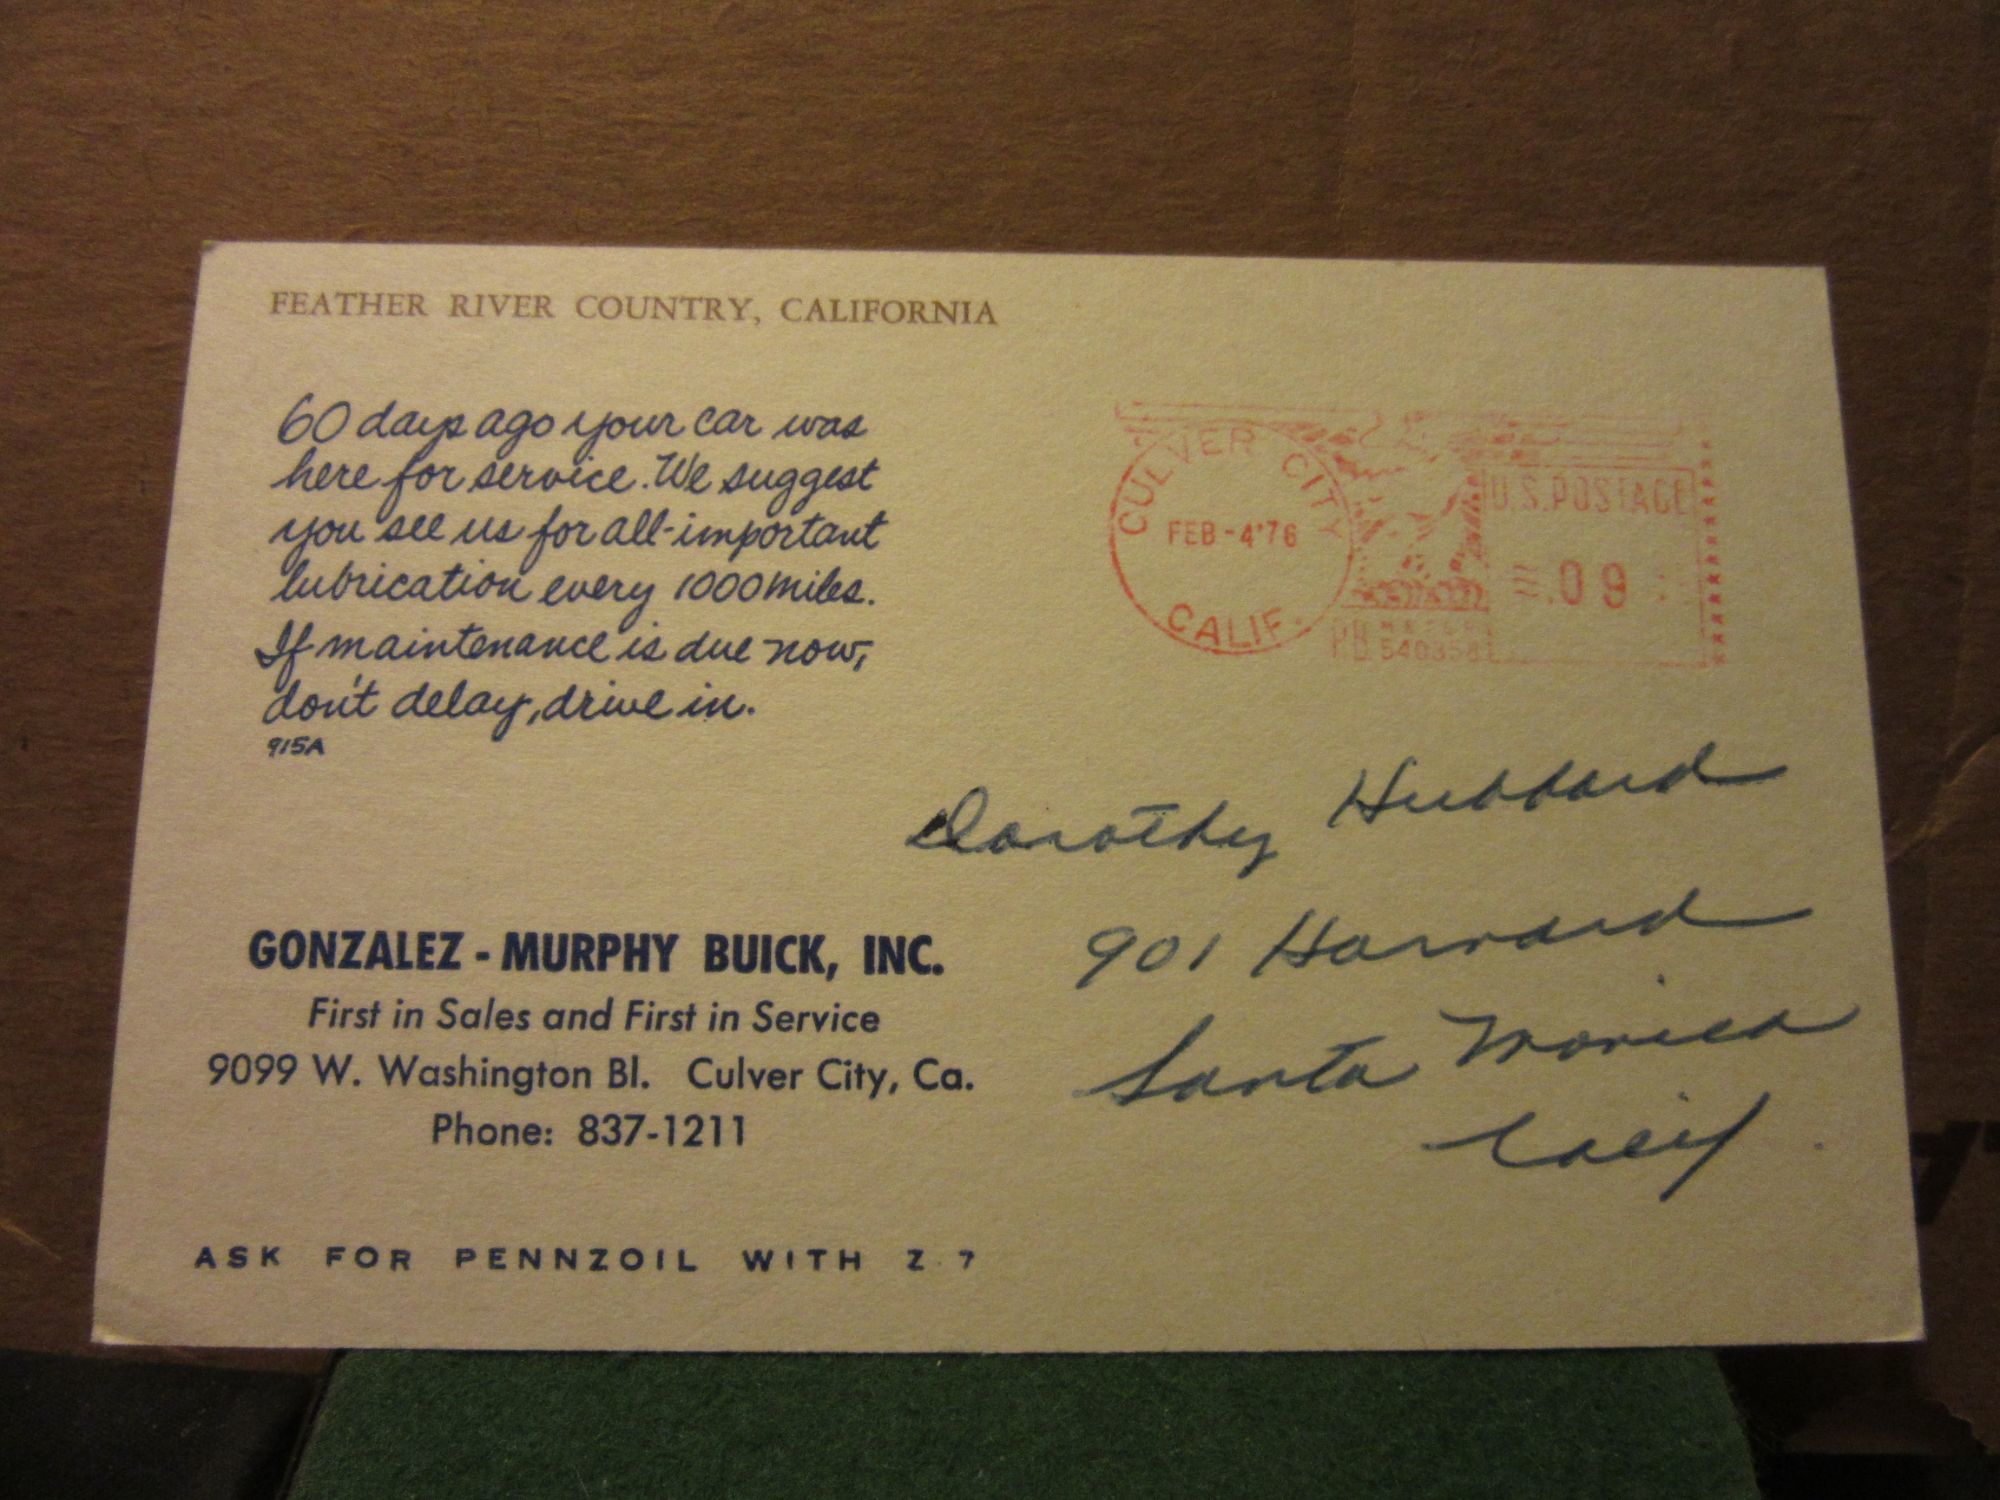 FEATHER RIVER COUNTRY, CALIFORNIA
60 days ago your car was
here for service. We suggest
you see us for all-important
lubrication every 1000 miles.
If maintenance is due now,
don't delay, drive in.
915A
CULVER CITY
FEB-4'76
CALIF.
U.S.POSTAGE
.09
P.B.
Dorothy Hubbard
901 Harvard
Santa Monica
Calif
GONZALEZ - MURPHY BUICK, INC.
First in Sales and First in Service
9099 W. Washington Bl. Culver City, Ca.
Phone: 837-1211
ASK FOR PENNZOIL WITH Z-7